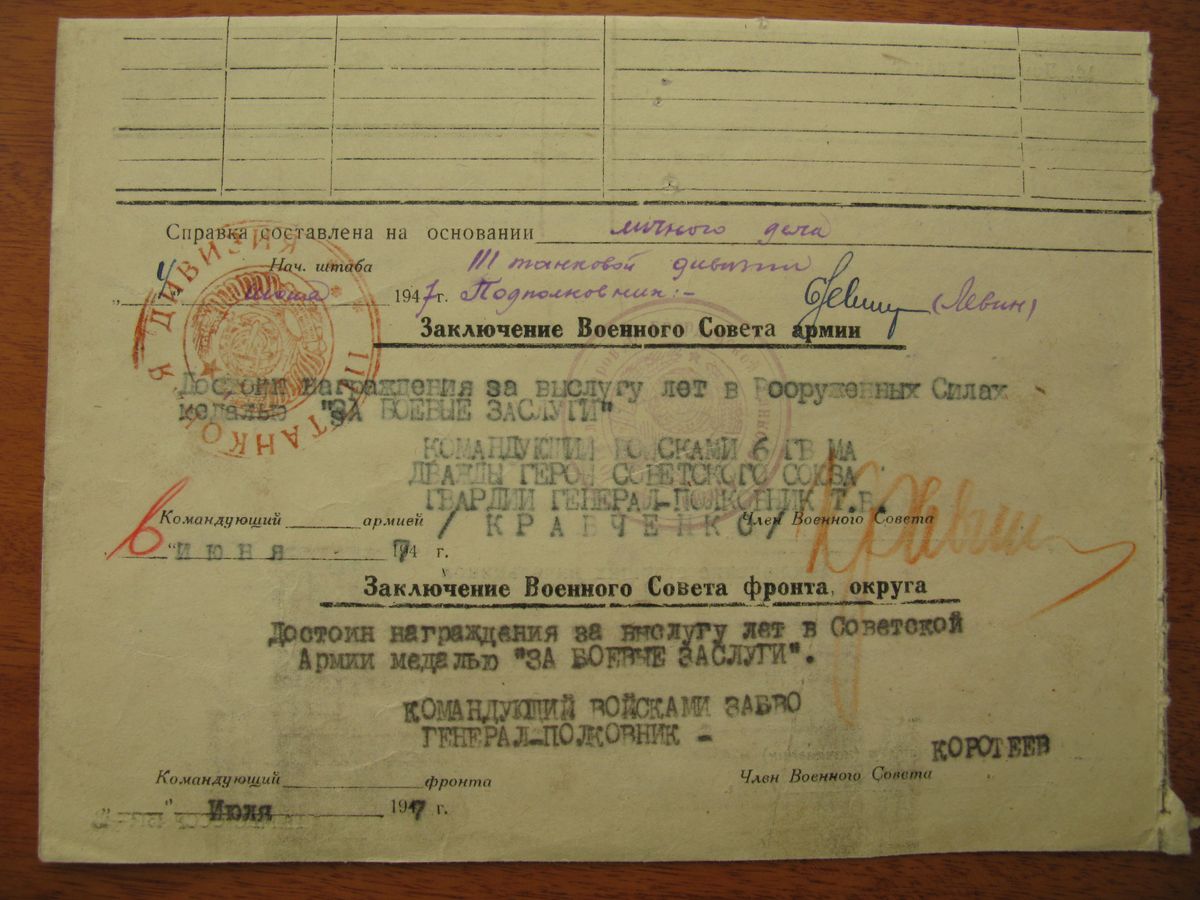 Справка составлена на основании личного дела
Нач. штаба 111 танковой дивизии
"4" июня 1947 г. Подполковник:- (Левин)
111 ТАНКОВАЯ ДИВИЗИЯ
Заключение Военного Совета армии
Достоин награждения за выслугу лет в Вооруженных Силах
медалью "ЗА БОЕВЫЕ ЗАСЛУГИ"
КОМАНДУЮЩИЙ ВОЙСКАМИ 6 ГВ МА
ДВАЖДЫ ГЕРОЙ СОВЕТСКОГО СОЮЗА
ГВАРДИИ ГЕНЕРАЛ-ПОЛКОВНИК Т.В.
Командующий армией / КРАВЧЕНКО/ Член Военного Совета
6 " июня 1947 г.
Заключение Военного Совета фронта, округа
Достоин награждения за выслугу лет в Советской
Армии медалью "ЗА БОЕВЫЕ ЗАСЛУГИ".
КОМАНДУЮЩИЙ ВОЙСКАМИ ЗАБВО
ГЕНЕРАЛ-ПОЛКОВНИК -
КОРОТЕЕВ
Командующий фронта Член Военного Совета
" " Июля 1947 г.